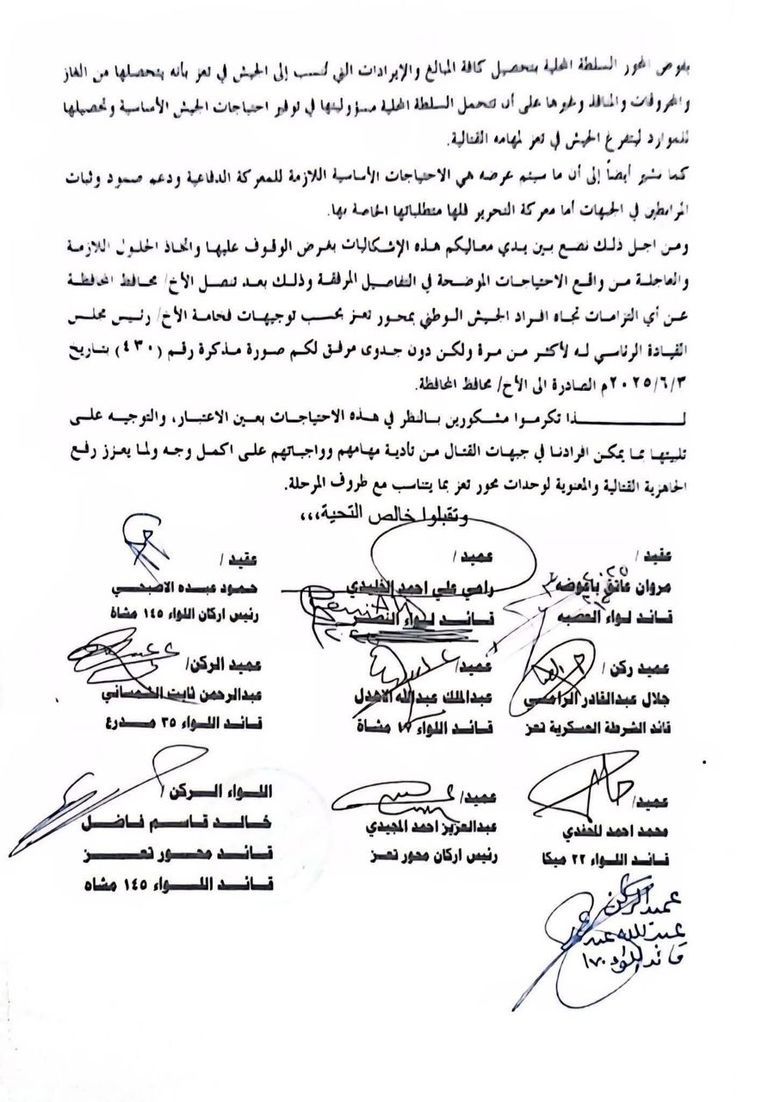 يفوض المحور السلطة المحلية بتحصيل كافة المبالغ والإيرادات التي تُنسب إلى الجيش في تعز بأنه يتحصلها من الغاز
والمحروقات والمنافذ وغيرها على أن تتحمل السلطة المحلية مسؤوليتها في توفير احتياجات الجيش الأساسية وتحصيلها
للموارد ليتفرغ الجيش في تعز لمهامه القتالية.
كما نشير أيضاً إلى أن ما سيتم عرضه هي الاحتياجات الأساسية اللازمة للمعركة الدفاعية ودعم صمود وثبات
المرابطين في الجبهات أما معركة التحرير فلها متطلباتها الخاصة بها.
ومن اجل ذلك نضع بين يدي معاليكم هذه الإشكاليات بغرض الوقوف عليها واتخاذ الحلول اللازمة
والعاجلة من واقع الاحتياجات الموضحة في التفاصيل المرفقة وذلك بعد تنصل الأخ/ محافظ المحافظة
عن أي التزامات تجاه افراد الجيش الوطني بمحور تعز بحسب توجيهات فخامة الأخ/ رئيس مجلس
القيادة الرئاسي له لأكثر من مرة ولكن دون جدوى مرفق لكم صورة مذكرة رقم (٤٣٠) بتاريخ
٢٠٢٥/٦/٣م الصادرة الى الأخ/ محافظ المحافظة.
لـــذا تكرموا مشكورين بالنظر في هذه الاحتياجات بعين الاعتبار، والتوجيه على
تلبيتها بما يمكن افرادنا في جبهات القتال من تأدية مهامهم وواجباتهم على اكمل وجه ولما يعزز رفع
الجاهزية القتالية والمعنوية لوحدات محور تعز بما يتناسب مع ظروف المرحلة.
وتقبلوا خالص التحية،،،
عقيد/ عميد/ عقيد/
مروان عاتق رامي علي احمد الخليدي حمود عبده الاصبحي
قائد لواء العصبه قائد لواء النصر رئيس اركان اللواء ١٤٥ مشاة
عميد ركن/ عميد/ عميد الركن/
جلال عبدالقادر عبدالملك عبدالله الاهدل عبدالرحمن ثابت الشمساني
قائد الشرطة العسكرية تعز قائد اللواء ١٧ مشاة قائد اللواء ٣٥ مدرع
عميد/ عميد/ اللواء الركن/
محمد احمد المحفدي عبدالعزيز احمد المجيدي خالد قاسم فاضل
قائد اللواء ٢٢ ميكا رئيس اركان محور تعز قائد محور تعز
قائد اللواء ١٤٥ مشاه
عميد الركن
عبدالله عبده
قائد اللواء ١٧٠